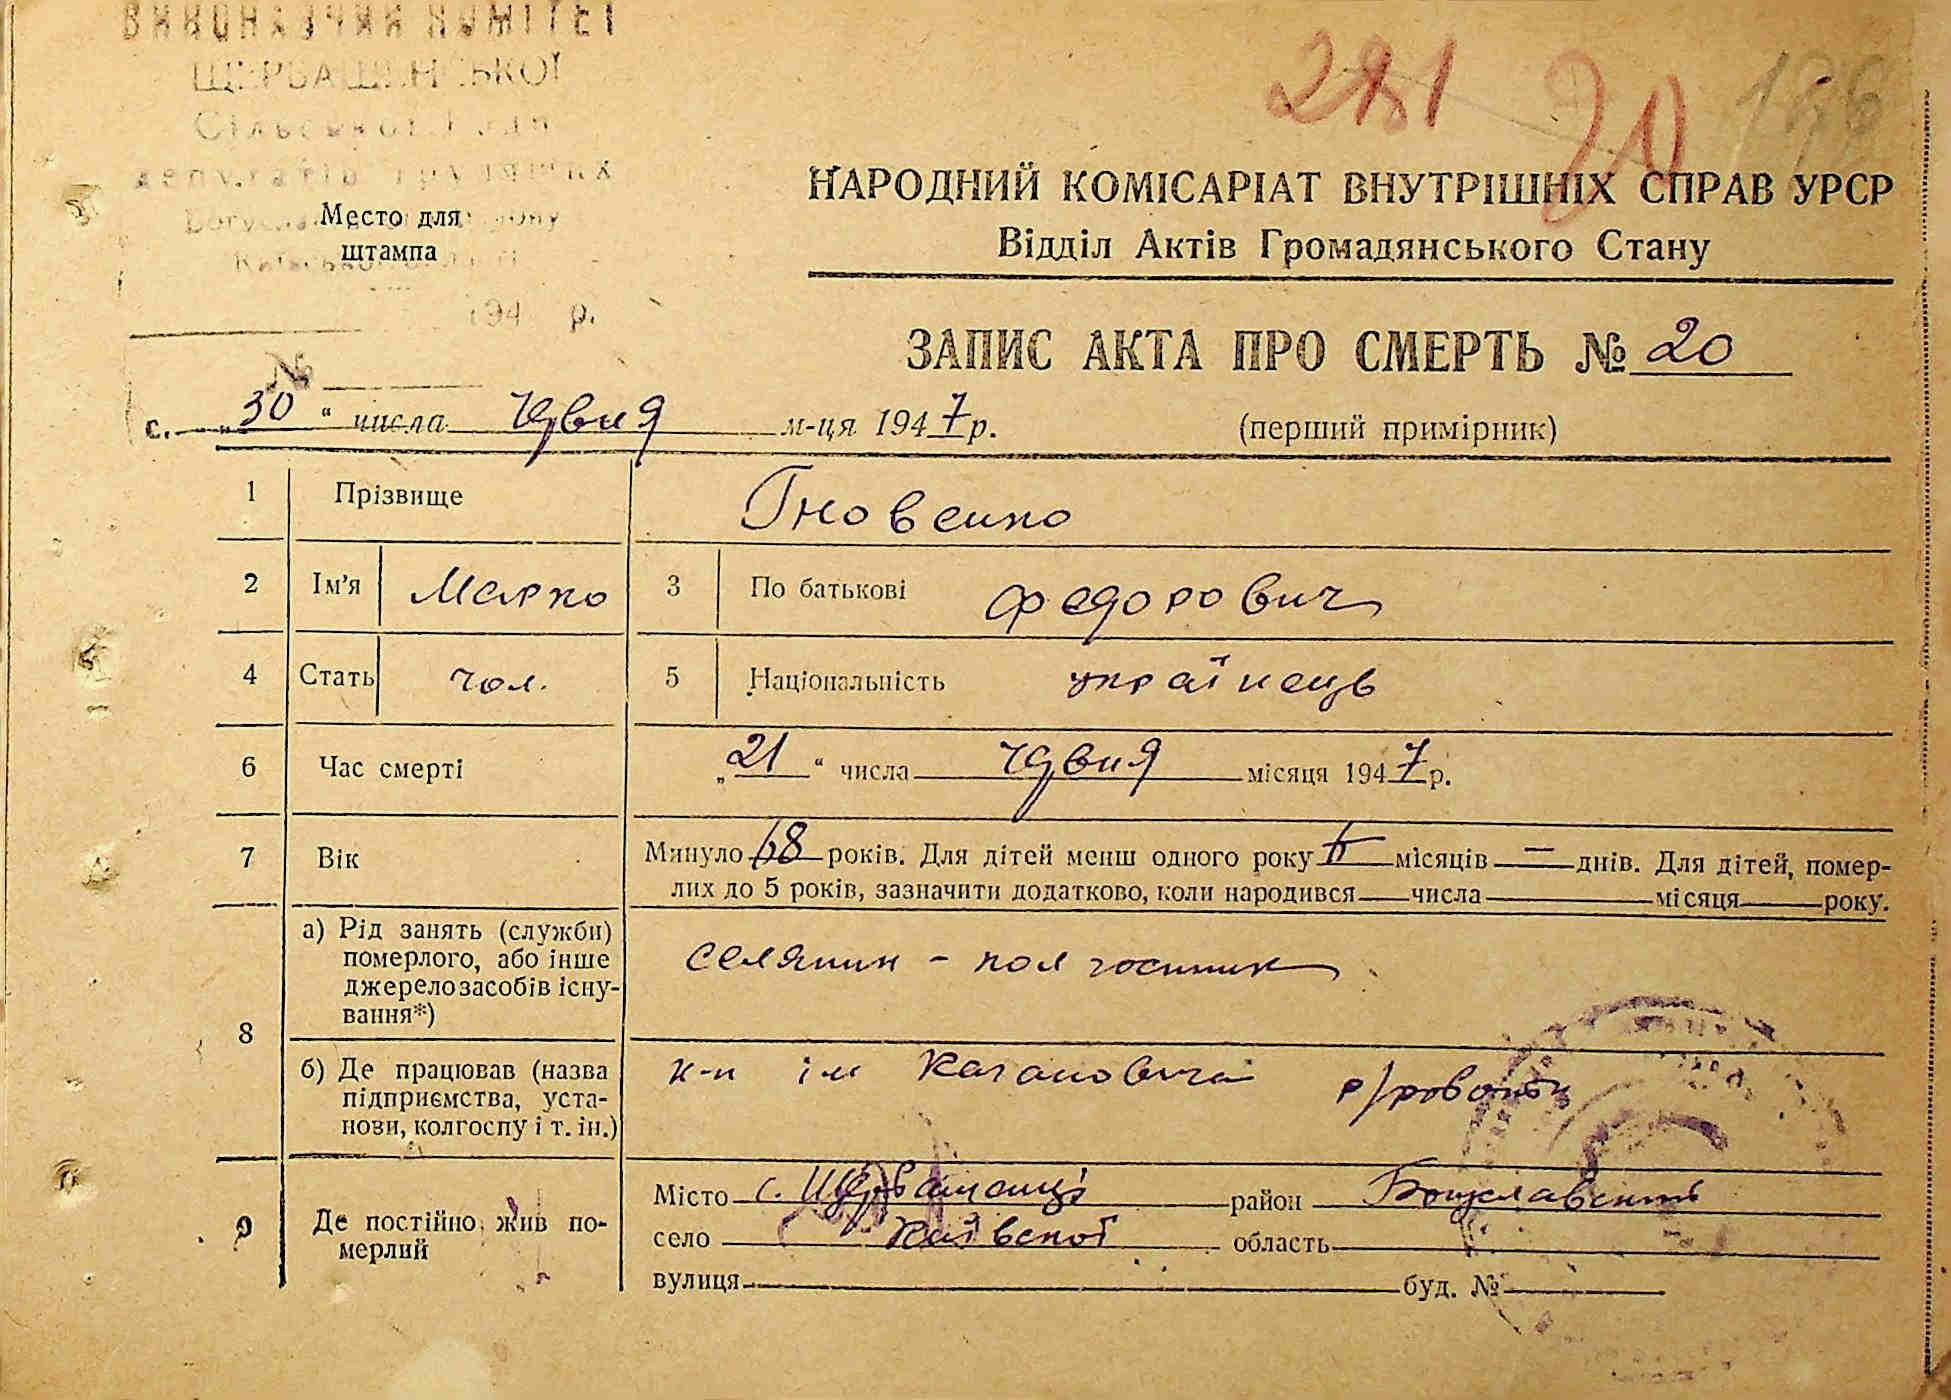 ВИКОНАВЧИЙ КОМІТЕТ
281 20 186
Сільської Ради
депутатів трудящих
НАРОДНИЙ КОМІСАРІАТ ВНУТРІШНІХ СПРАВ УРСР
Место для
штампа
Відділ Актів Громадянського Стану
194 р.
ЗАПИС АКТА ПРО СМЕРТЬ № 20
№
с. „30“ числа червня м-ця 1947 р. (перший примірник)
1 Прізвище Гновенко
2 Ім'я Марко 3 По батькові Федорович
4 Стать чол. 5 Національність українець
6 Час смерті „21“ числа червня місяця 1947 р.
7 Вік Минуло 68 років. Для дітей менш одного року місяців — днів. Для дітей, помер-
лих до 5 років, зазначити додатково, коли народився числа місяця року.
8 а) Рід занять (служби)
померлого, або інше
джерело засобів існу-
вання*)
селянин - колгоспник
б) Де працював (назва
підприємства, уста-
нови, колгоспу і т. ін.)
к-п ім Кагановича
9 Де постійно жив по-
мерлий
Місто с. Щербашенці район Богуславський
село Київської область
вулиця буд. №